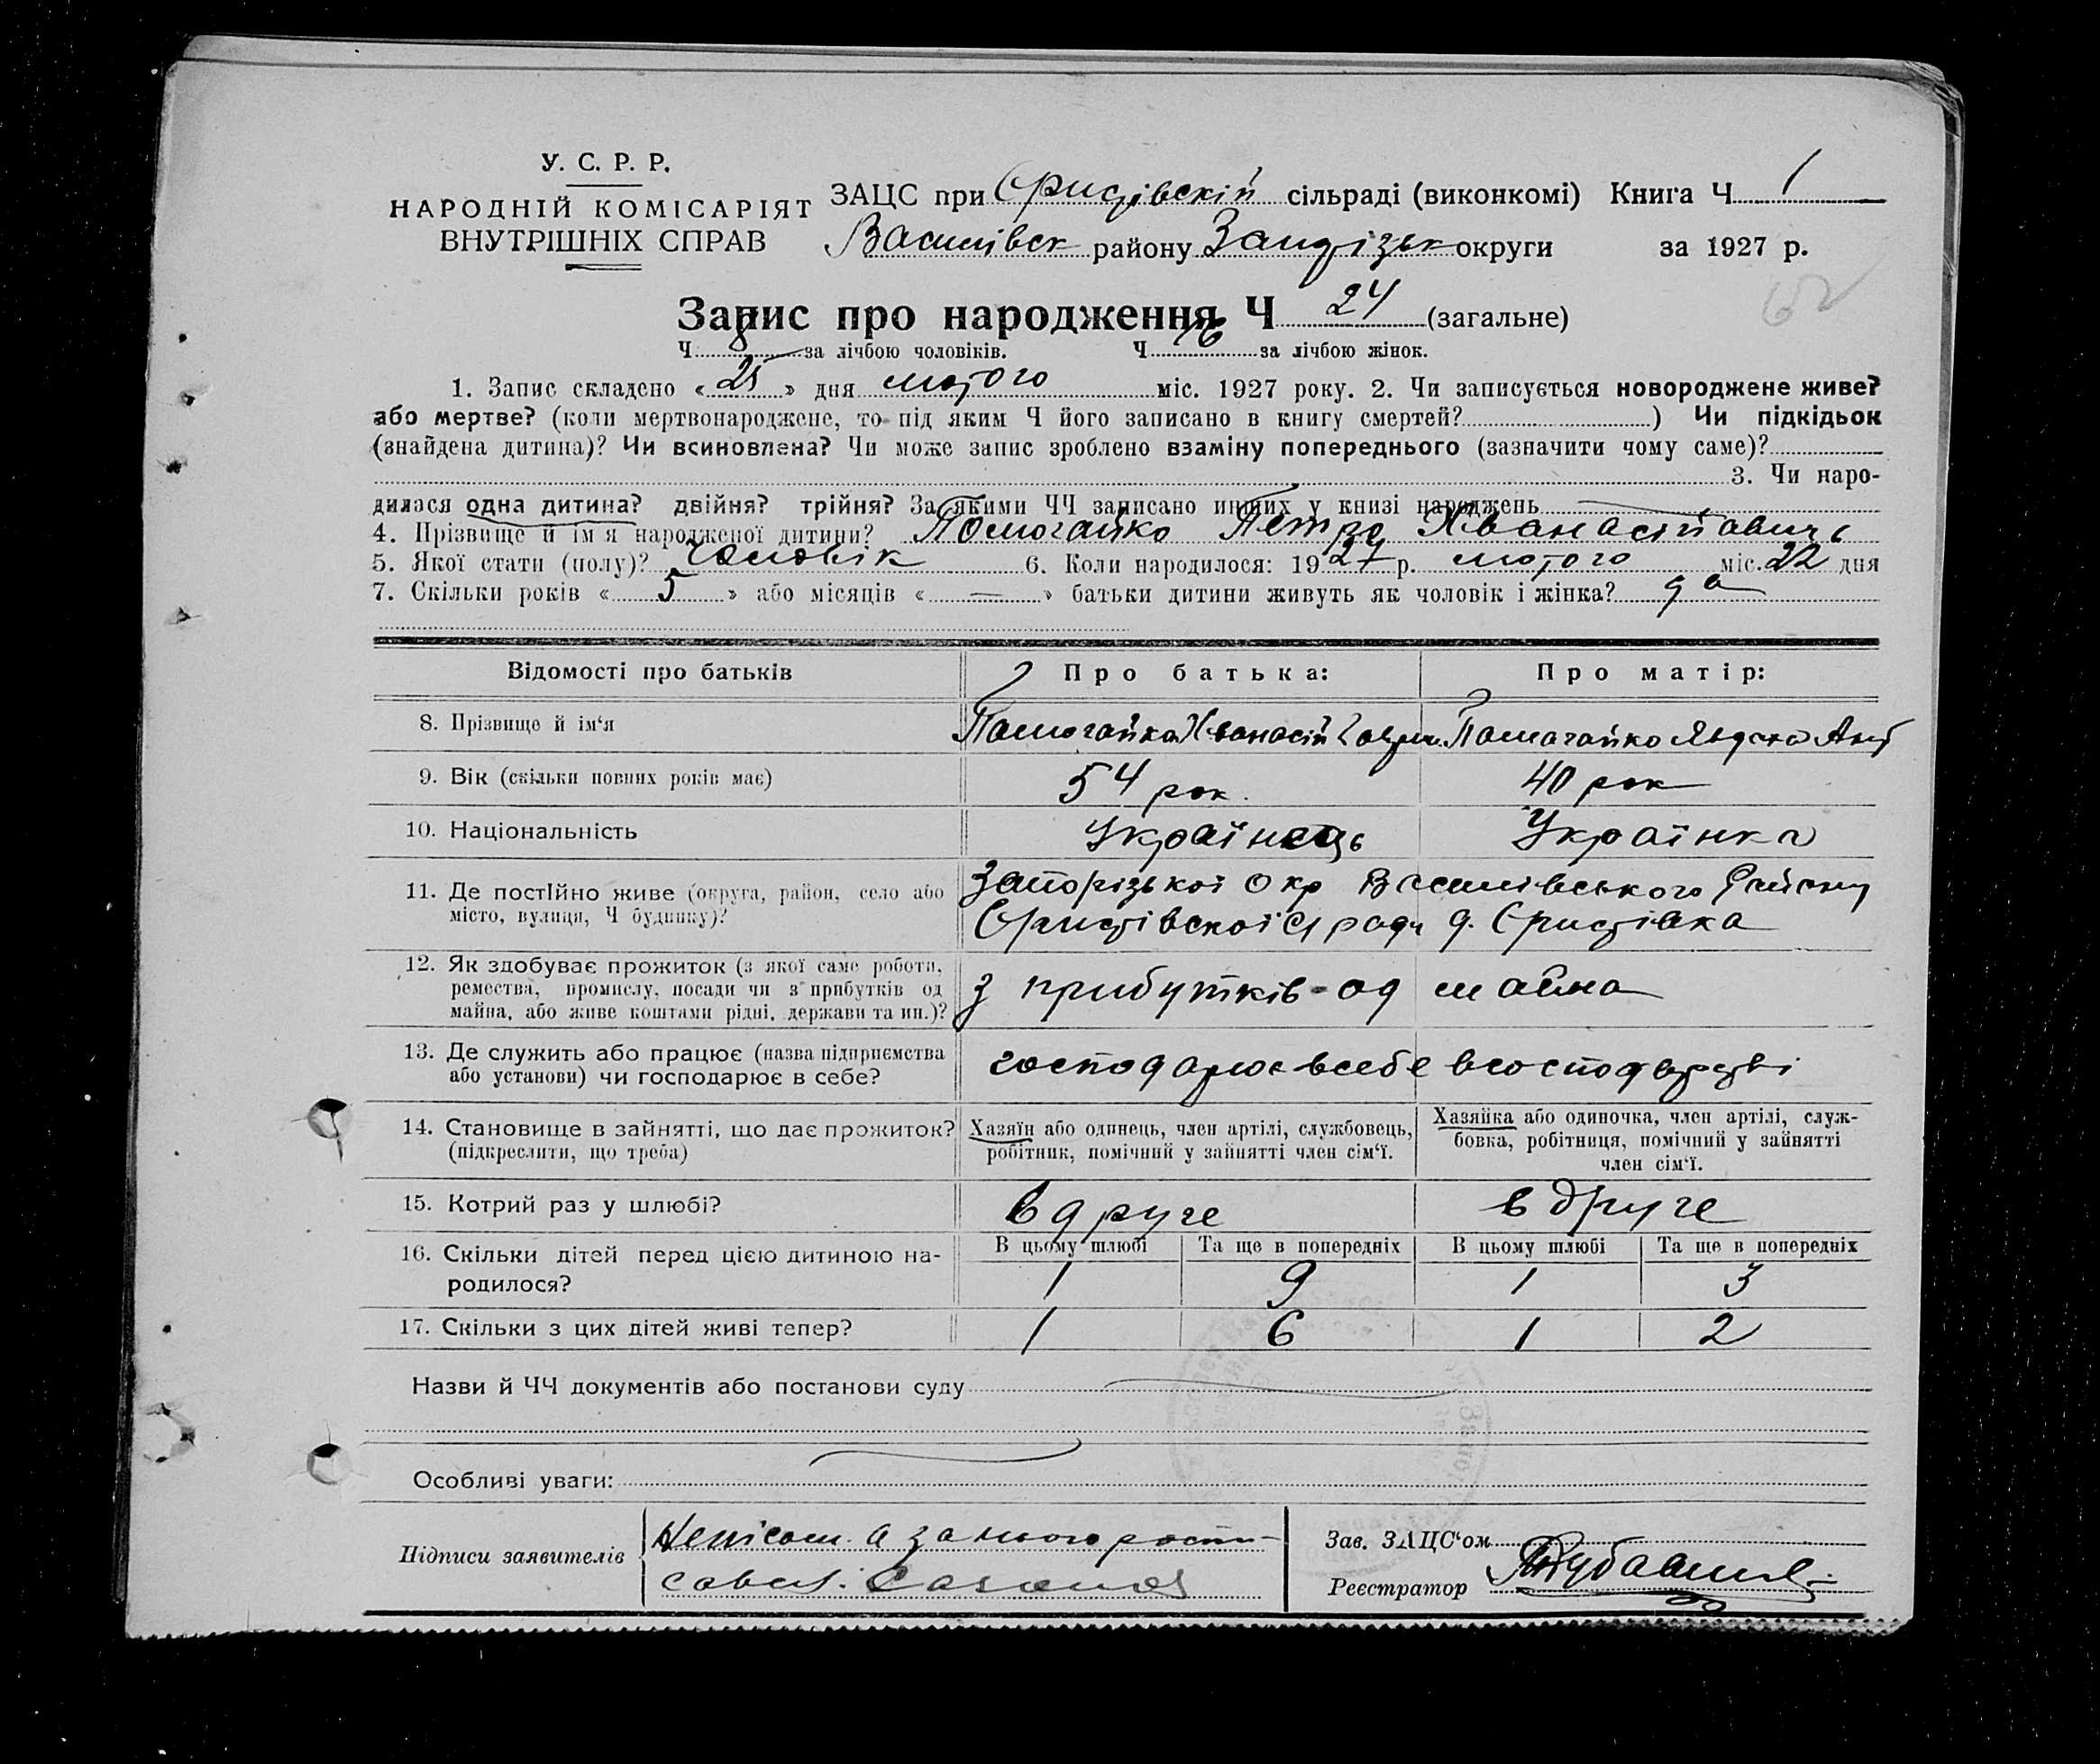 У. С. Р. Р.
НАРОДНІЙ КОМІСАРІЯТ
ВНУТРІШНІХ СПРАВ
ЗАЦС при Єристівскій сільраді (виконкомі) Книга Ч 1
Василівск району Запорізьк округи за 1927 р.
62
Запис про народження Ч 24 (загальне)
Ч 8 за лічбою чоловіків. Ч 16 за лічбою жінок.
1. Запис складено « 25 » дня лютого міс. 1927 року. 2. Чи записується новороджене живе?
або мертве? (коли мертвонароджене, то під яким Ч його записано в книгу смертей?) Чи підкідьок
(знайдена дитина)? Чи всиновлена? Чи може запис зроблено взаміну попереднього (зазначити чому саме)?
3. Чи наро-
дилася одна дитина? двійня? трійня? За якими ЧЧ записано инших у книзі народжень
4. Прізвище й ім'я народженої дитини? Помогайко Петро Хванасійович
5. Якої стати (полу)? Чоловік 6. Коли народилося: 1927 р. лютого міс. 22 дня
7. Скільки років « 5 » або місяців « — » батьки дитини живуть як чоловік і жінка? да
Відомості про батьків Про батька: Про матір:
8. Прізвище й ім'я Помогайко Хванасій Помогайко
9. Вік (скільки повних років має) 54 рок. 40 рок
10. Національність Українець Українка
11. Де постійно живе (округа, район, село або
місто, вулиця, Ч будинку)?
Запорізької Окр Василівського Району
Єристівскої С ради д. Єристівка
12. Як здобуває прожиток (з якої саме роботи,
ремества, промислу, посади чи з прибутків од
майна, або живе коштами рідні, держави та ин.)?
з прибутків од майна
13. Де служить або працює (назва підприємства
або установи) чи господарює в себе?
господарює в себе в господарстві
14. Становище в зайнятті, що дає прожиток?
(підкреслити, що треба)
Хазяїн або одинець, член артілі, службовець,
робітник, помічний у зайнятті член сім'ї.
Хазяйка або одиночка, член артілі, служ-
бовка, робітниця, помічний у зайнятті
член сім'ї.
15. Котрий раз у шлюбі? вдруге вдруге
16. Скільки дітей перед цією дитиною на-
родилося?
В цьому шлюбі Та ще в попередніх В цьому шлюбі Та ще в попередніх
1 9 1 3
17. Скільки з цих дітей живі тепер? 1 6 1 2
Назви й ЧЧ документів або постанови суду
Особливі уваги:
Підписи заявителів
а за нього
Зав. ЗАЦС'ом
Реєстратор